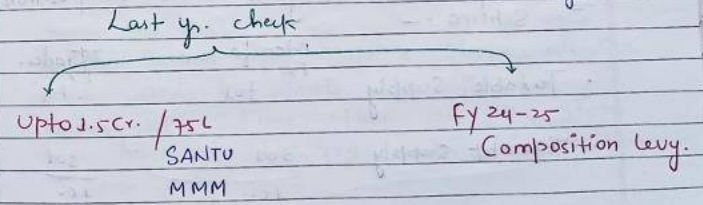 Last yr. check
Upto 1.5 Cr. / 75L
SANTU
MMM
FY 24-25
Composition levy.